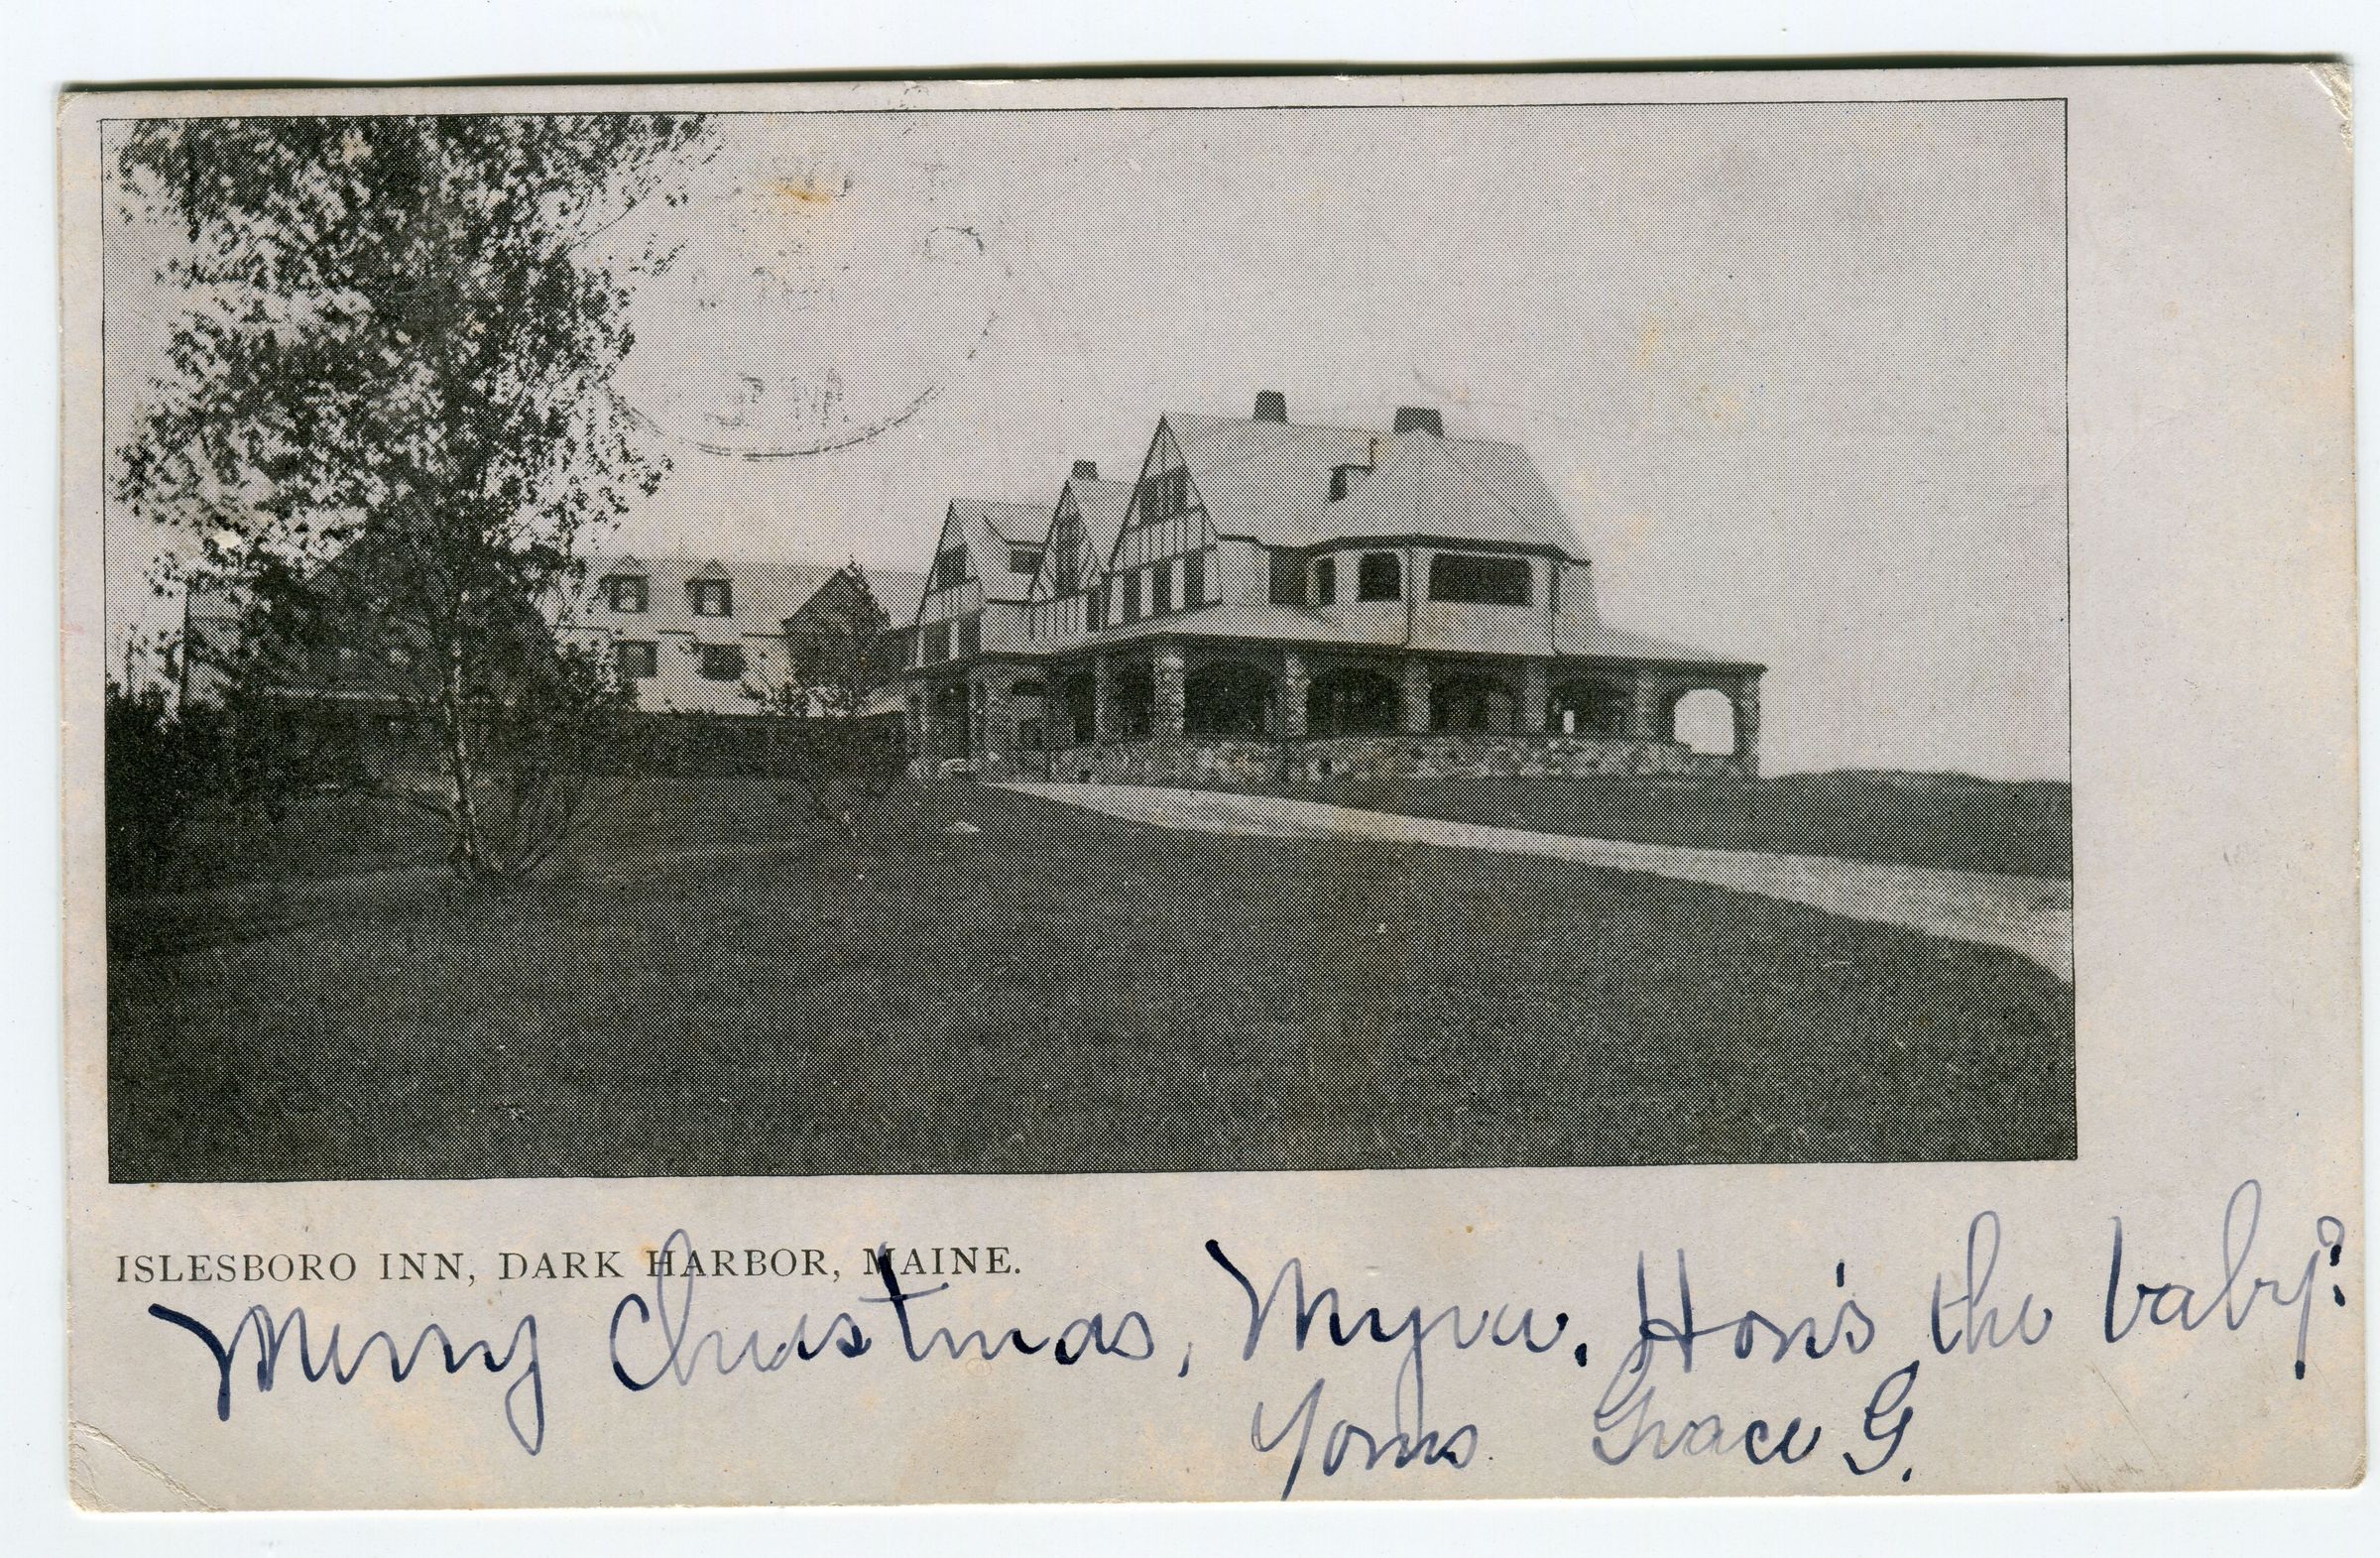 ISLESBORO INN, DARK HARBOR, MAINE.
Merry Christmas, Myra. How's the baby?
Yours Grace G.